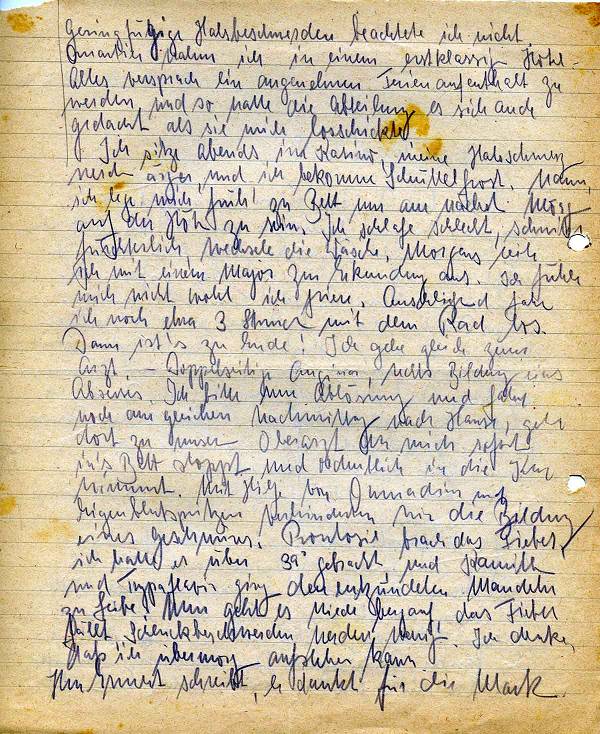 geringfügige Halsbeschwerden beachtete ich nicht
Quartier nahm ich in einem erstklassig Hotel.
Alles versprach ein angenehmer Ferienaufenthalt zu
werden, und so hatte die Abteilung es sich auch
gedacht als sie mich losschickte
Ich sitze abends im Kasino, meine Halsschmerz
ärger, und ich bekomme Schüttelfrost. Nann,
ich lege mich früh zu Bett um am nächst Morg
auf der Höhe zu sein. Ich schlafe schlecht, schwitze
fürchterlich wechsele die Wäsche, Morgens
ich mit einem Major zur Erkundung aus. Ich fühle
mich nicht wohl ich friere. Anschließend fahre
ich noch etwa 3 Stunden mit dem Rad los.
Dann ist's zu Ende! Ich gehe gleich zum
Arzt. – Doppelseitige Angina, rechts Bildung eines
Abszess. Ich bitte um Ablösung und fahre
noch am gleichen Nachmittag nach Hause, gehe
dort zu unser Oberarzt der mich sofort
in's Bett stoppt und ordentlich in die Kur
nimmt. Mit Hilfe von Omnadin und
Eigenblutspritzen verhinderten wir die Bildung
eines Geschwürs. Prontosil brach das Fieber,
ich hatte es über 39° gebracht und
und ging den entzündeten Mandeln
zu Leibe. Nun geht es wieder bergauf das Fieber
fällt Schluckbeschwerden werden wenig. Ich denke,
daß ich übermorg aufstehen kann
schreibt, er dankt für die Mark.